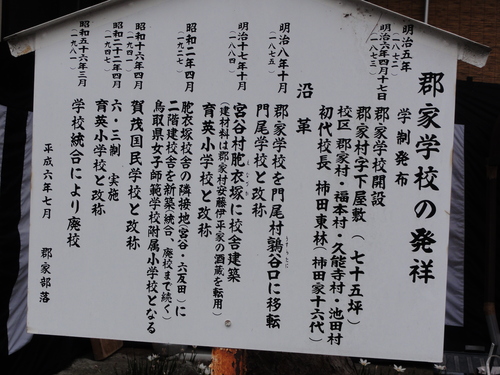 郡家学校の発祥
明治五年
(一八七二)
学制発布
明治六年四月十七日
(一八七三)
郡家学校開設
郡家村字下屋敷(七十五坪)
校区 郡家村・福本村・久能寺村・池田村
初代校長 柿田東林(柿田家十六代)
沿革
明治八年十月
(一八七五)
郡家学校を門尾村鶉谷口に移転
門尾学校と改称
明治十七年十月
(一八八四)
宮谷村胞衣塚に校舎建築
(建材料は郡家村安藤伊平家の酒蔵を転用)
育英小学校と改称
昭和二年四月
(一九二七)
胞衣塚校舎の隣接地(宮谷・六反田)に
二階建校舎を新築(統合、廃校まで続く)
鳥取県女子師範学校附属小学校となる
昭和十六年四月
(一九四一)
賀茂国民学校と改称
昭和二十二年四月
(一九四七)
六・三制 実施
育英小学校と改称
昭和五十六年三月
(一九八一)
学校統合により廃校
平成六年七月 郡家部落